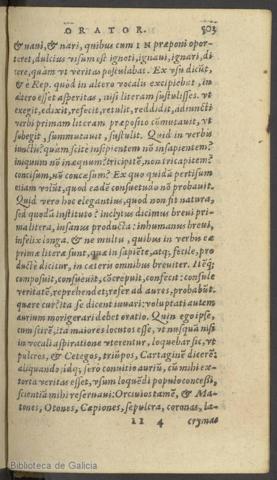 ORATOR. 503
& nani, & nari, quibus cum IN præponi opor-
teret, dulcius visum est ignoti, ignaui, ignari, di
cere, quàm vt veritas postulabat. Ex vsu dicūt,
& è Rep. quòd in altero vocalis excipiebat, in
altero esset asperitas, nisi literam sustulisses. vt
exegit, edixit, refecit, retulit, reddidit, adiuncti
verbi primam literam præpositio cōmutauit, vt
subegit, summutauit, sustulit. Quid in verbis
iunctis? quàm scitè insipientem nō insapientem?
iniquum nō inæquum: tricipitē, non tricapitem?
concisum, nō concæsum? Ex quo quidā pertisum
etiam volūt, quod eadē consuetudo nō probauit.
Quid verò hoc elegantius, quod non fit natura,
sed quodā instituto? inclytus dicimus breui pri-
ma litera, insanus producta: inhumanus breui,
infelix longa. & ne multu, quibus in verbis eæ
primæ literæ sunt, quæ in sapiēte, atq; felice, pro
ductè dicitur, in cæteris omnibus breuiter. Itēq;
composuit, consueuit, cōcrepuit, confecit: consule
veritatē, reprehendet, refer ad aures, probabūt.
quære cur: ita se dicent iuuari: voluptati autem
aurium morigerari debet oratio. Quin ego ipse,
cum scirē, ita maiores locutos esse, vt nusquā nisi
in vocali aspiratione vterentur, loquebar sic, vt
pulcros, & Cetegos, triūpos, Cartaginē dicerē;
aliquando, idq; serò conuitio auriū, cū mihi ex-
torta veritas esset, vsum loquēdi populo concessi,
scientiā mihi reseruaui: Orciuios tamē, & Ma-
tones, Otones, Cæpiones, sepulcra, coronas, la-
II 4 crymas
Biblioteca de Galicia